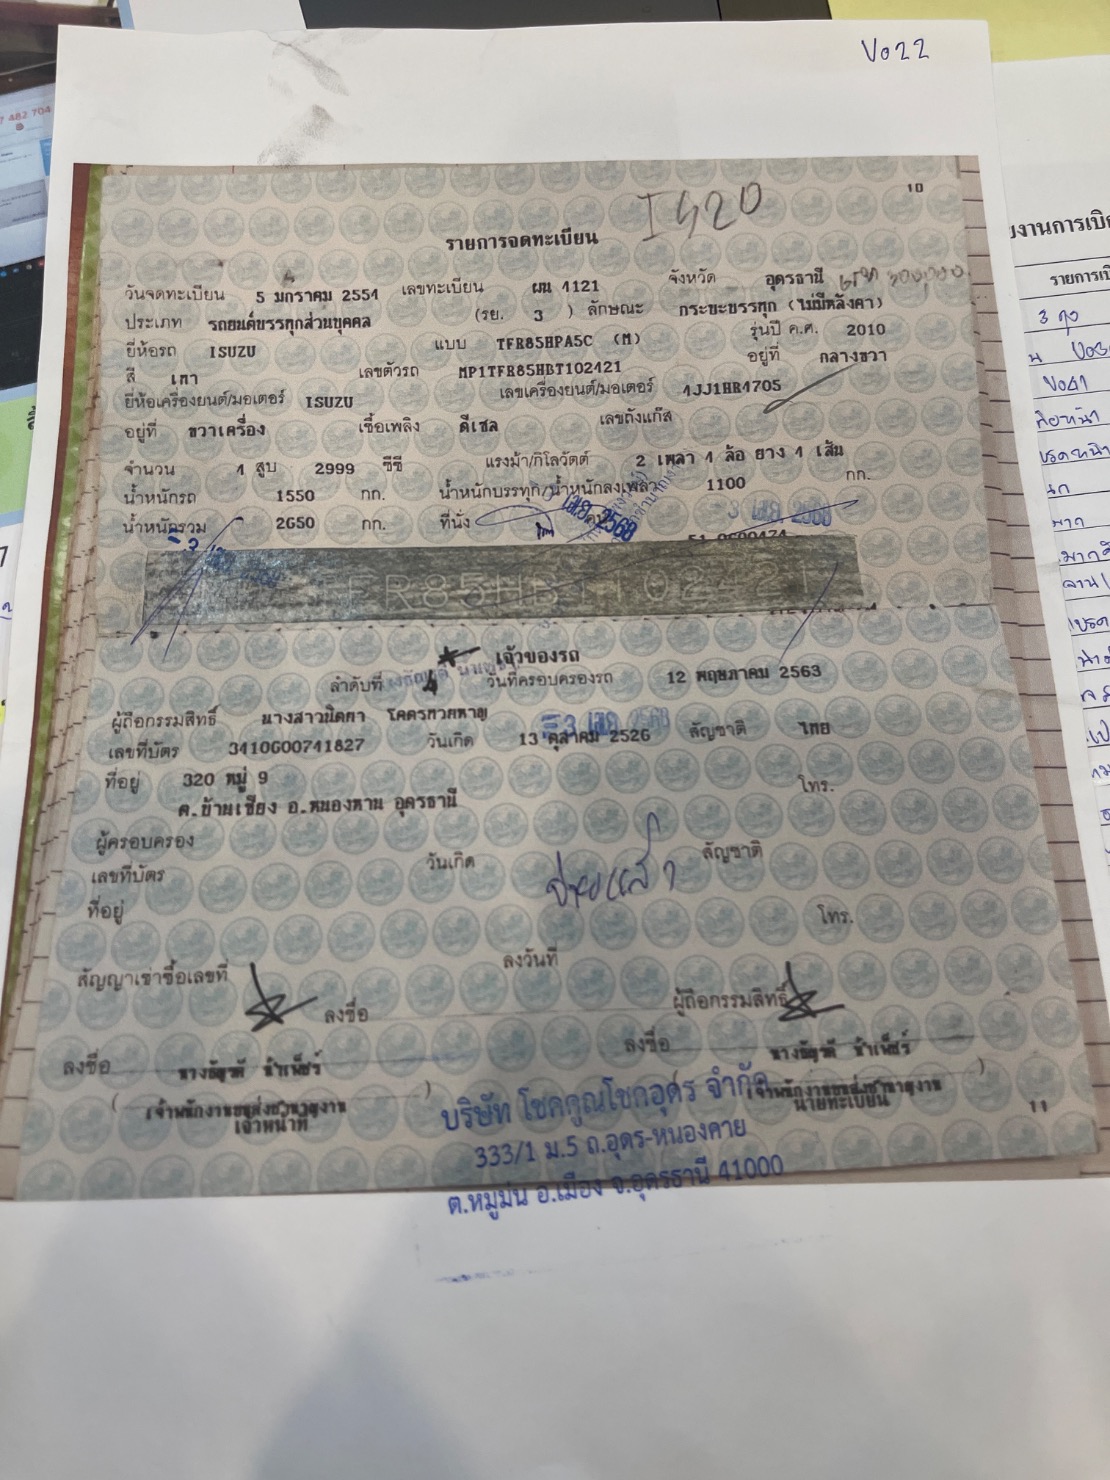 Vo22
10
I420
รายการจดทะเบียน
วันจดทะเบียน 5 มกราคม 2554 เลขทะเบียน ผน 4121 จังหวัด อุดรธานี
ประเภท รถยนต์บรรทุกส่วนบุคคล (รย. 3 ) ลักษณะ กระบะบรรทุก (ไม่มีหลังคา)
ยี่ห้อรถ ISUZU แบบ TFR85HPA5C (M) รุ่นปี ค.ศ. 2010
สี เทา เลขตัวรถ MP1TFR85HBT102421 อยู่ที่ กลางขวา
ยี่ห้อเครื่องยนต์/มอเตอร์ ISUZU เลขเครื่องยนต์/มอเตอร์ 4JJ1HR4705
อยู่ที่ ขวาเครื่อง เชื้อเพลิง ดีเซล เลขถังแก๊ส
จำนวน 4 สูบ 2999 ซีซี แรงม้า/กิโลวัตต์ 2 เพลา 4 ล้อ ยาง 4 เส้น
น้ำหนักรถ 1550 กก. น้ำหนักบรรทุก/น้ำหนักลงเพลา 1100 กก.
น้ำหนักรวม 2650 กก. ที่นั่ง
3 เม.ย. 2568
FR85HBT102421
เจ้าของรถ
ลำดับที่ 4 วันที่ครอบครองรถ 12 พฤษภาคม 2563
ผู้ถือกรรมสิทธิ์ นางสาวนิตยา โคตรทวยหาญ
เลขที่บัตร 3410600741827 วันเกิด 13 ตุลาคม 2526 สัญชาติ ไทย
ที่อยู่ 320 หมู่ 9 โทร.
ต.บ้านเชียง อ.หนองหาน อุดรธานี
ผู้ครอบครอง
เลขที่บัตร วันเกิด สัญชาติ
ที่อยู่ โทร.
สัญญาเช่าซื้อเลขที่ ลงวันที่
ลงชื่อ ผู้ถือกรรมสิทธิ์
ลงชื่อ ลงชื่อ
เจ้าพนักงานขนส่งชำนาญงาน เจ้าพนักงานขนส่งชำนาญงาน
เจ้าหน้าที่ นายทะเบียน
11
บริษัท โชคคูณโชคอุดร จำกัด
333/1 ม.5 ถ.อุดร-หนองคาย
ต.หมูม่น อ.เมือง จ.อุดรธานี 41000